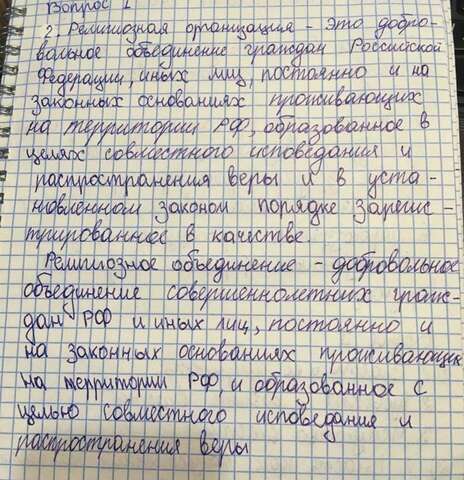 Вопрос 1
2. Религиозная организация - это добро-
вольное объединение граждан Российской
Федерации, иных лиц, постоянно и на
законных основаниях проживающих
на территории РФ, образованное в
целях совместного исповедания и
распространения веры и в уста-
новленном законом порядке зарегис-
трированное в качестве.
Религиозное объединение - добровольное
объединение совершеннолетних граж-
дан РФ и иных лиц, постоянно и
на законных основаниях проживающих
на территории РФ, и образованное с
целью совместного исповедания и
распространения веры